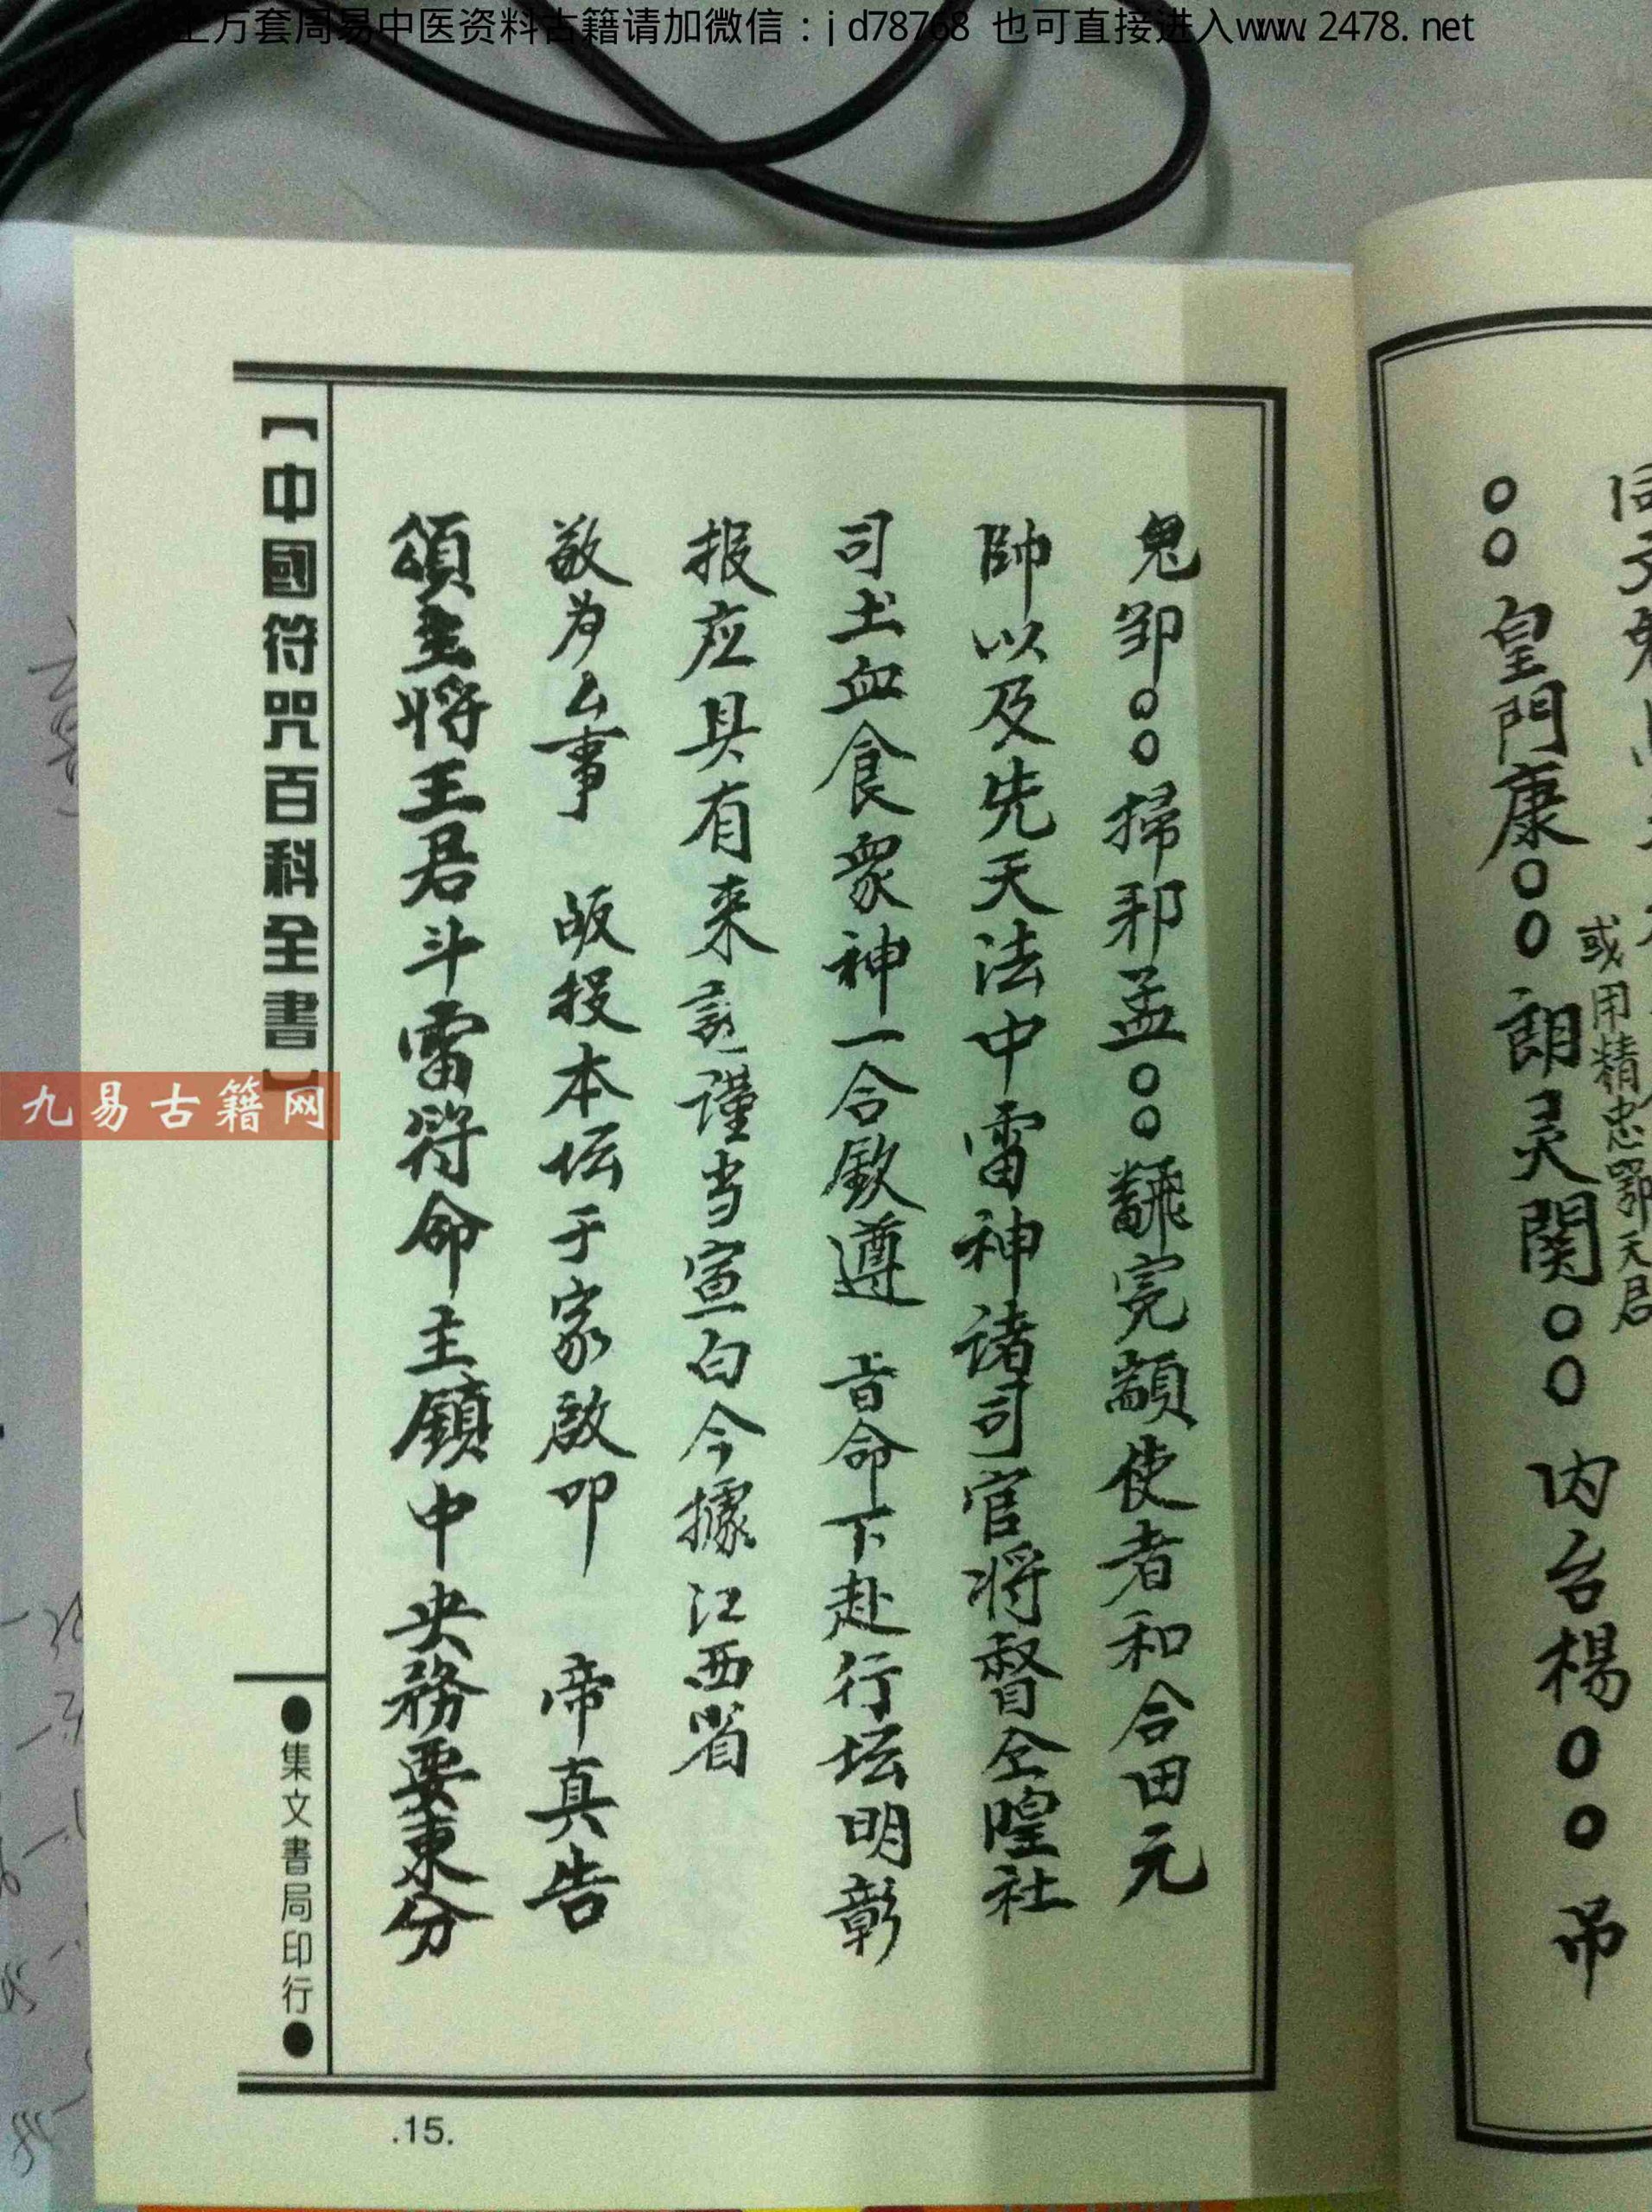 上万套周易中医资料古籍请加微信：jd78768 也可直接进入www.2478.net
同
或用精忠鄂天君
○○皇門康○○朗灵関○○内台楊○○吊
鬼鄧○○掃邪孟○○ 使者和合田元
帥以及先天法中雷神诸司官将督仝隍社
司土血食衆神一合欽遵 旨命下赴行坛明彰
报应具有来 謹当宣白今據江西省
敬为厶事 皈投本坛于家啟叩 帝真告
頒主将王君斗雷符命主鎮中央務要東分
【中國符咒百科全書】
●集文書局印行●
九易古籍网
.15.